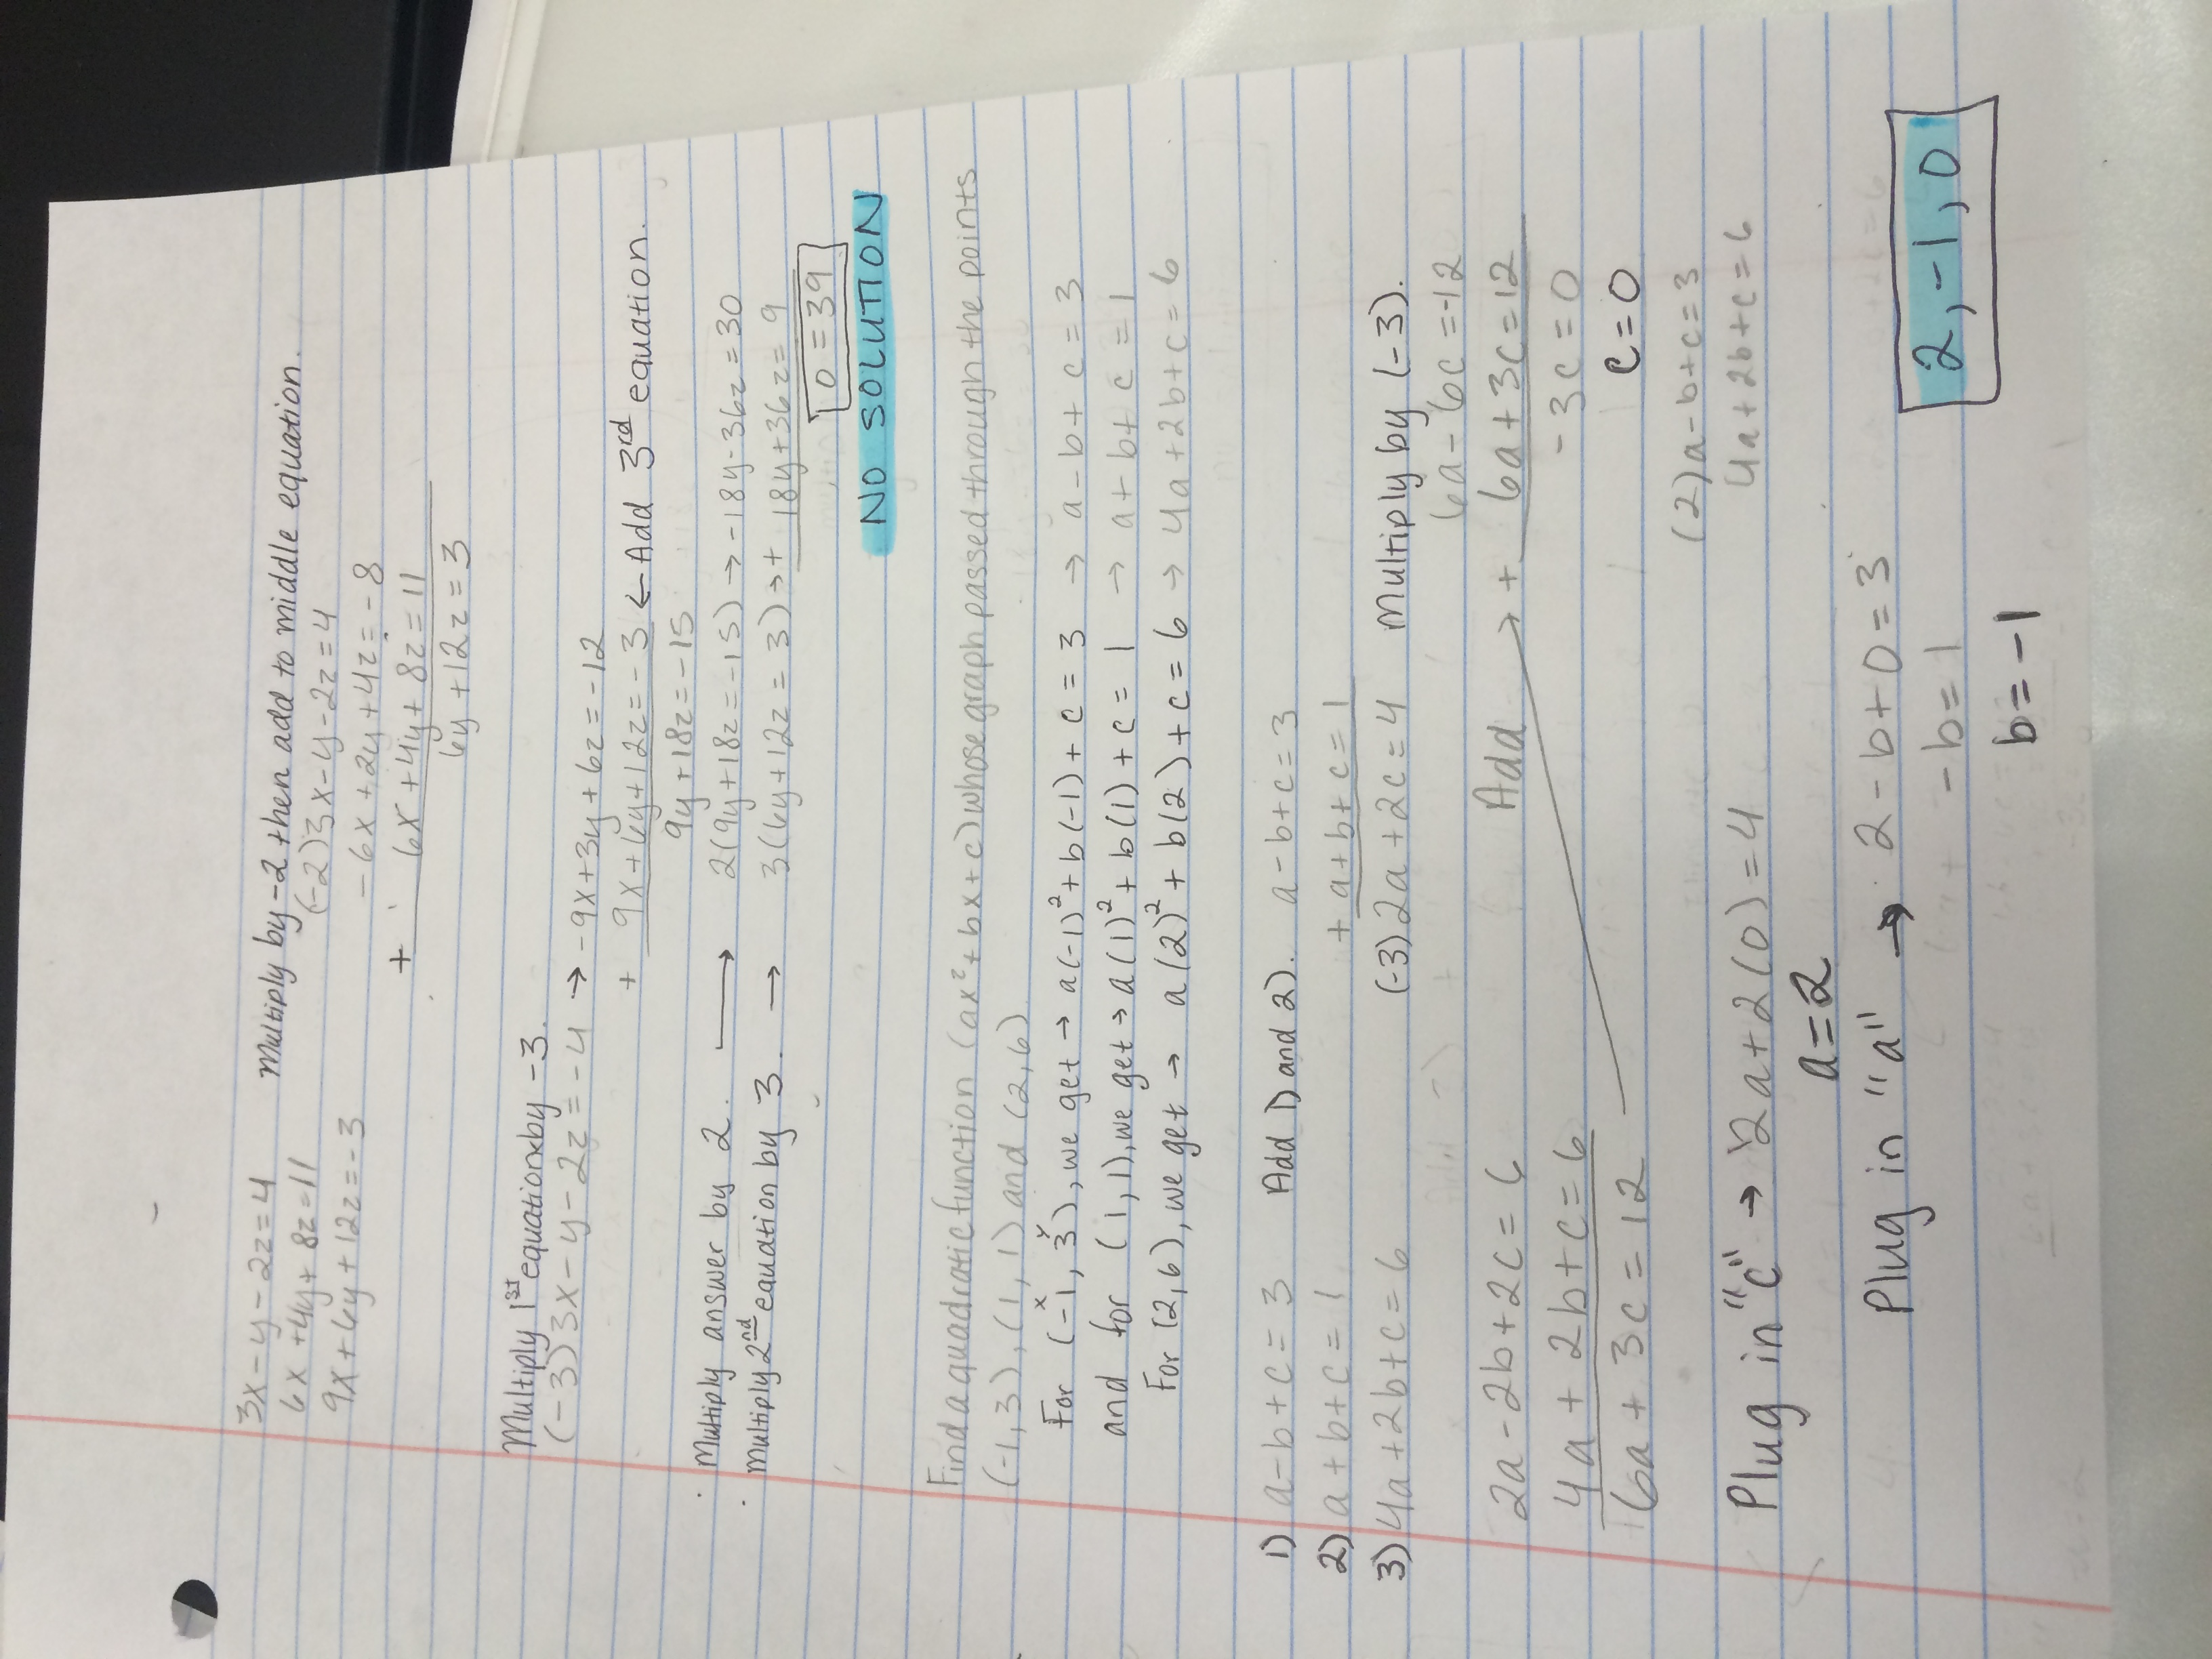 3x-y-2z=4 Multiply by -2 then add to middle equation.
6x+4y+8z=11 (-2)3x-y-2z=4
9x+6y+12z=-3 -6x+2y+4z=-8
+ 6x+4y+8z=11
6y+12z=3
Multiply 1st equation by -3.
(-3)3x-y-2z=-4 → -9x+3y+6z=-12
+ 9x+6y+12z=-3 ← Add 3rd equation.
9y+18z=-15
Multiply answer by 2. → 2(9y+18z=-15) → -18y-36z=30
Multiply 2nd equation by 3. → 3(6y+12z=3) → + 18y+36z=9
0=39
NO SOLUTION
Find a quadratic function (ax²+bx+c) whose graph passed through the points
(-1,3), (1,1) and (2,6)
x y
For (-1,3), we get → a(-1)²+b(-1)+c=3 → a-b+c=3
and for (1,1), we get → a(1)²+b(1)+c=1 → a+b+c=1
For (2,6), we get → a(2)²+b(2)+c=6 → 4a+2b+c=6
1) a-b+c=3 Add 1) and 2). a-b+c=3
2) a+b+c=1 + a+b+c=1
3) 4a+2b+c=6 (-3)2a+2c=4 Multiply by (-3).
6a-6c=-12
2a-2b+2c=6 Add → + 6a+3c=12
4a+2b+c=6 -3c=0
6a+3c=12 c=0
(2)a-b+c=3
Plug in "c" → 2a+2(0)=4 4a+2b+c=6
a=2
Plug in "a" → 2-b+0=3
-b=1 2,-1,0
b=-1